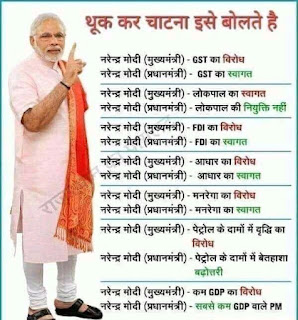 थूक कर चाटना इसे बोलते है
नरेन्द्र मोदी (मुख्यमंत्री) - GST का विरोध
नरेन्द्र मोदी (प्रधानमंत्री) - GST का स्वागत
नरेन्द्र मोदी (मुख्यमंत्री) - लोकपाल का स्वागत
नरेन्द्र मोदी (प्रधानमंत्री) - लोकपाल की नियुक्ति नहीं
नरेन्द्र मोदी (मुख्यमंत्री) - FDI का विरोध
नरेन्द्र मोदी (प्रधानमंत्री) - FDI का स्वागत
नरेन्द्र मोदी (मुख्यमंत्री) - आधार का विरोध
नरेन्द्र मोदी (प्रधानमंत्री) - आधार का स्वागत
नरेन्द्र मोदी (मुख्यमंत्री) - मनरेगा का विरोध
नरेन्द्र मोदी (प्रधानमंत्री) - मनरेगा का स्वागत
नरेन्द्र मोदी (मुख्यमंत्री) - पेट्रोल के दामों में वृद्धि का
विरोध
नरेन्द्र मोदी (प्रधानमंत्री) - पेट्रोल के दामों में बेतहाशा
बढ़ोत्तरी
नरेन्द्र मोदी (मुख्यमंत्री) - कम GDP का विरोध
नरेन्द्र मोदी (प्रधानमंत्री) - सबसे कम GDP वाले PM